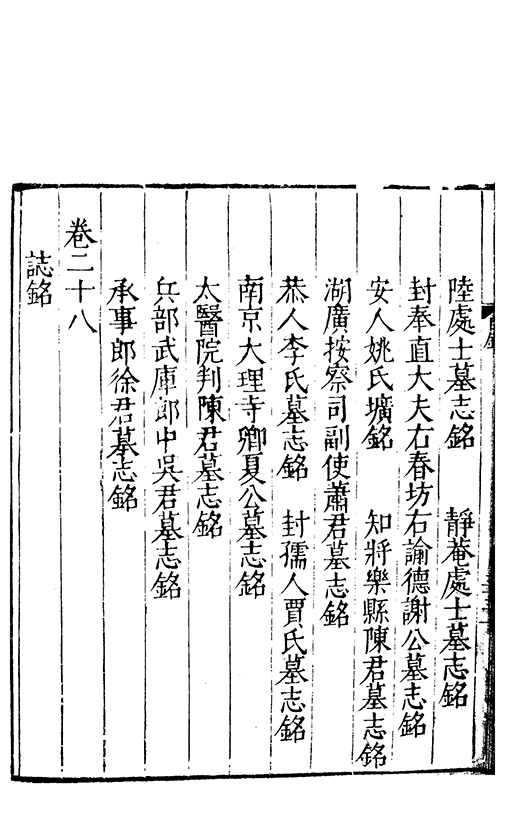 陸處士墓志銘　靜菴處士墓志銘
封奉直大夫右春坊右諭德謝公墓志銘
安人姚氏壙銘　知將樂縣陳君墓志銘
湖廣按察司副使蕭君墓志銘
恭人李氏墓志銘　封孺人賈氏墓志銘
南京大理寺卿夏公墓志銘
太醫院判陳君墓志銘
兵部武庫郎中吳君墓志銘
承事郎徐君墓志銘
卷二十八
誌銘